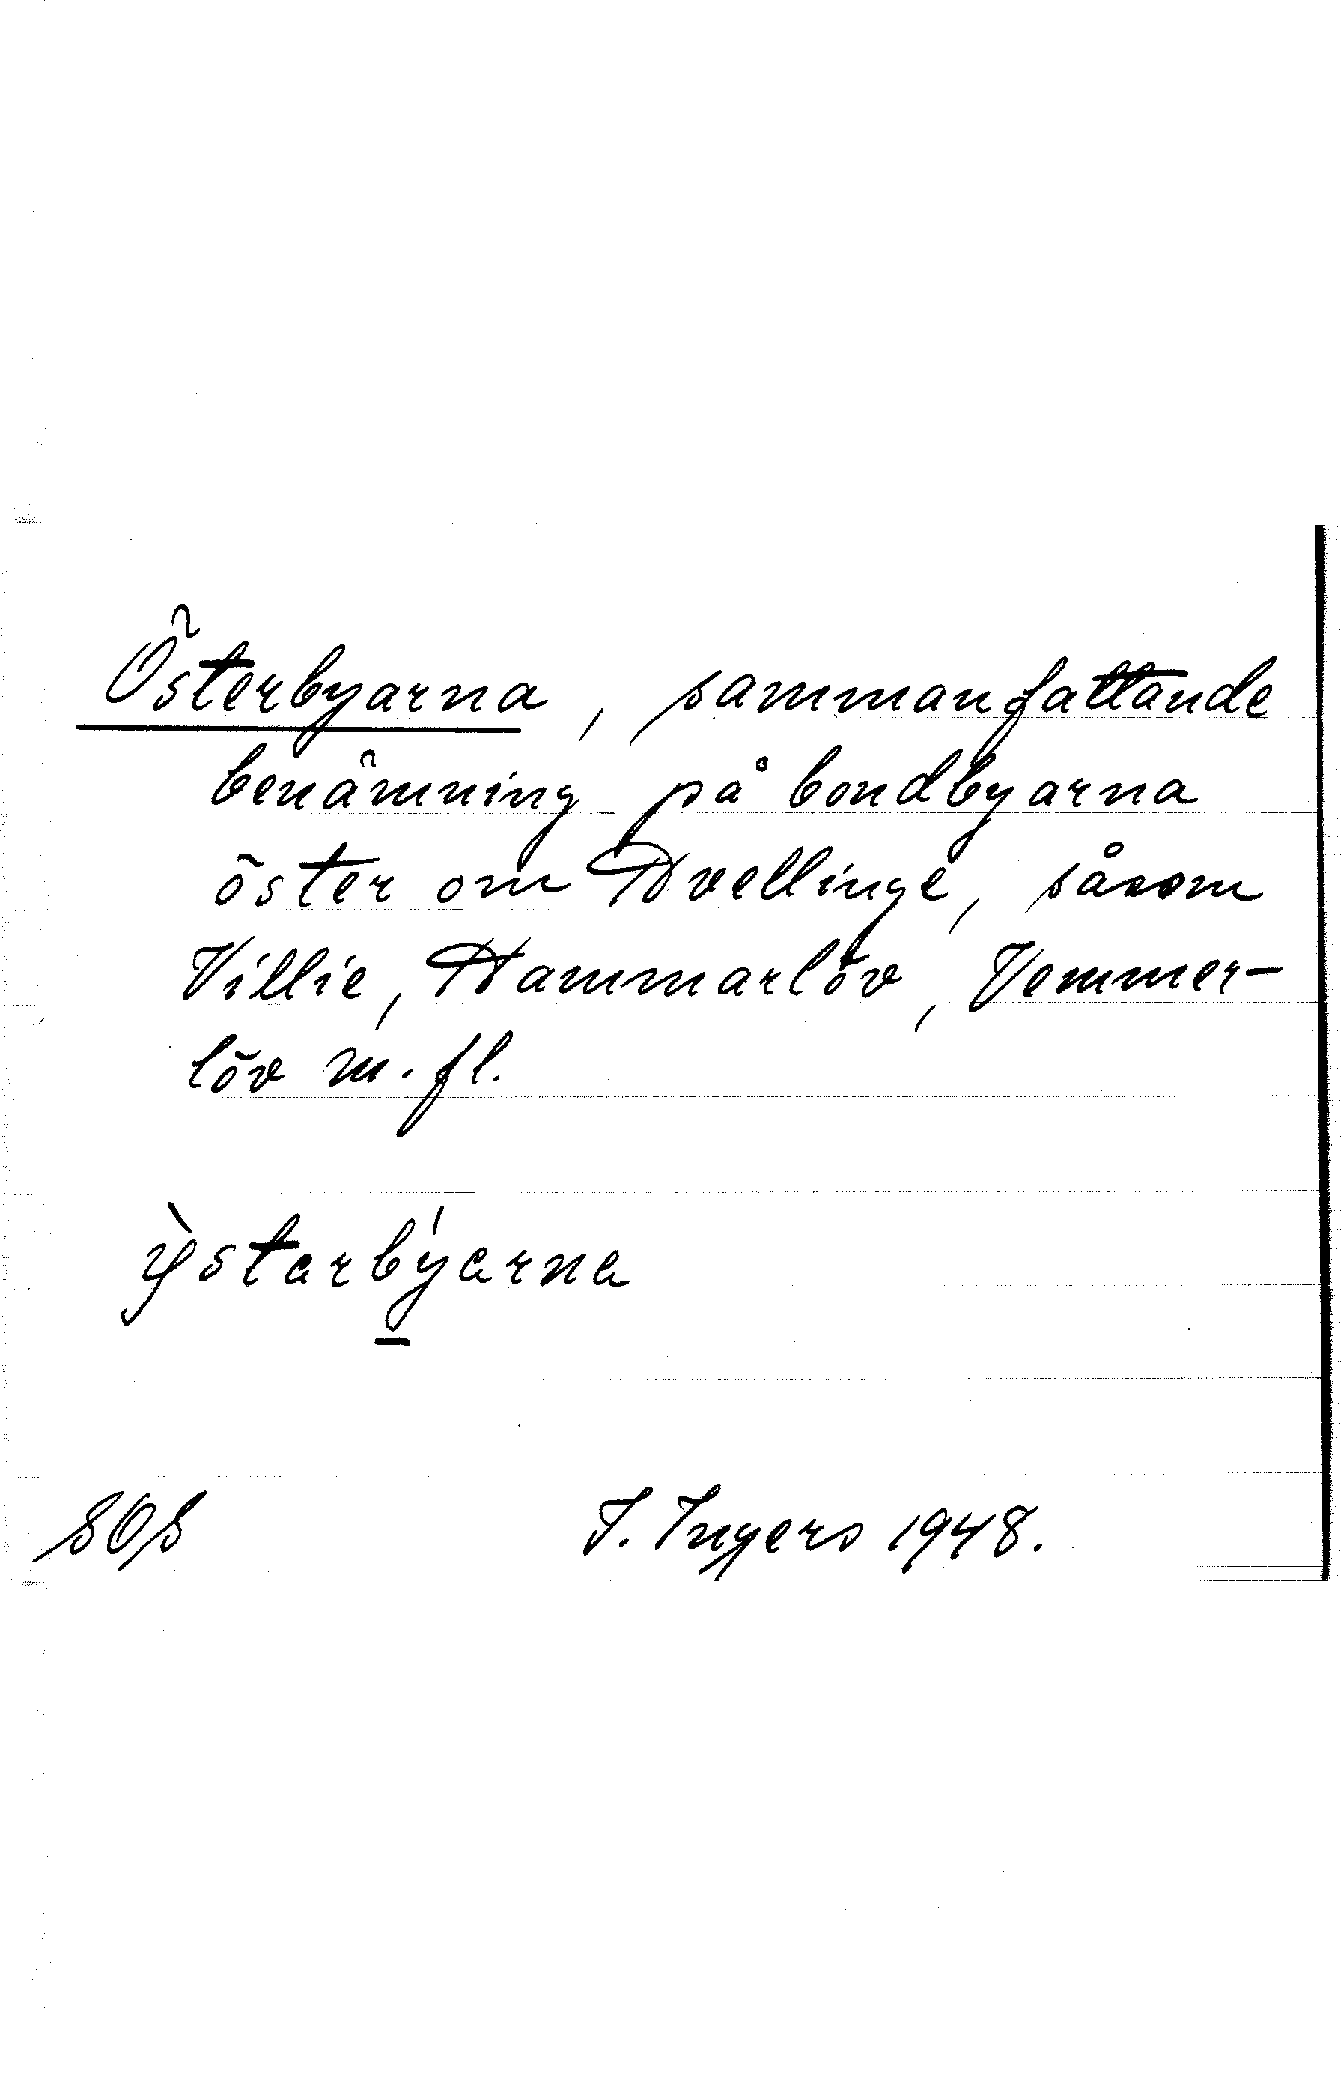 Österbyarna, sammanfattande
benämning på bondbyarna
öster om Hvellinge, såsom
Villie, Hammarlöv, Vemmer-
löv m. fl.
I. Ingers 1948.